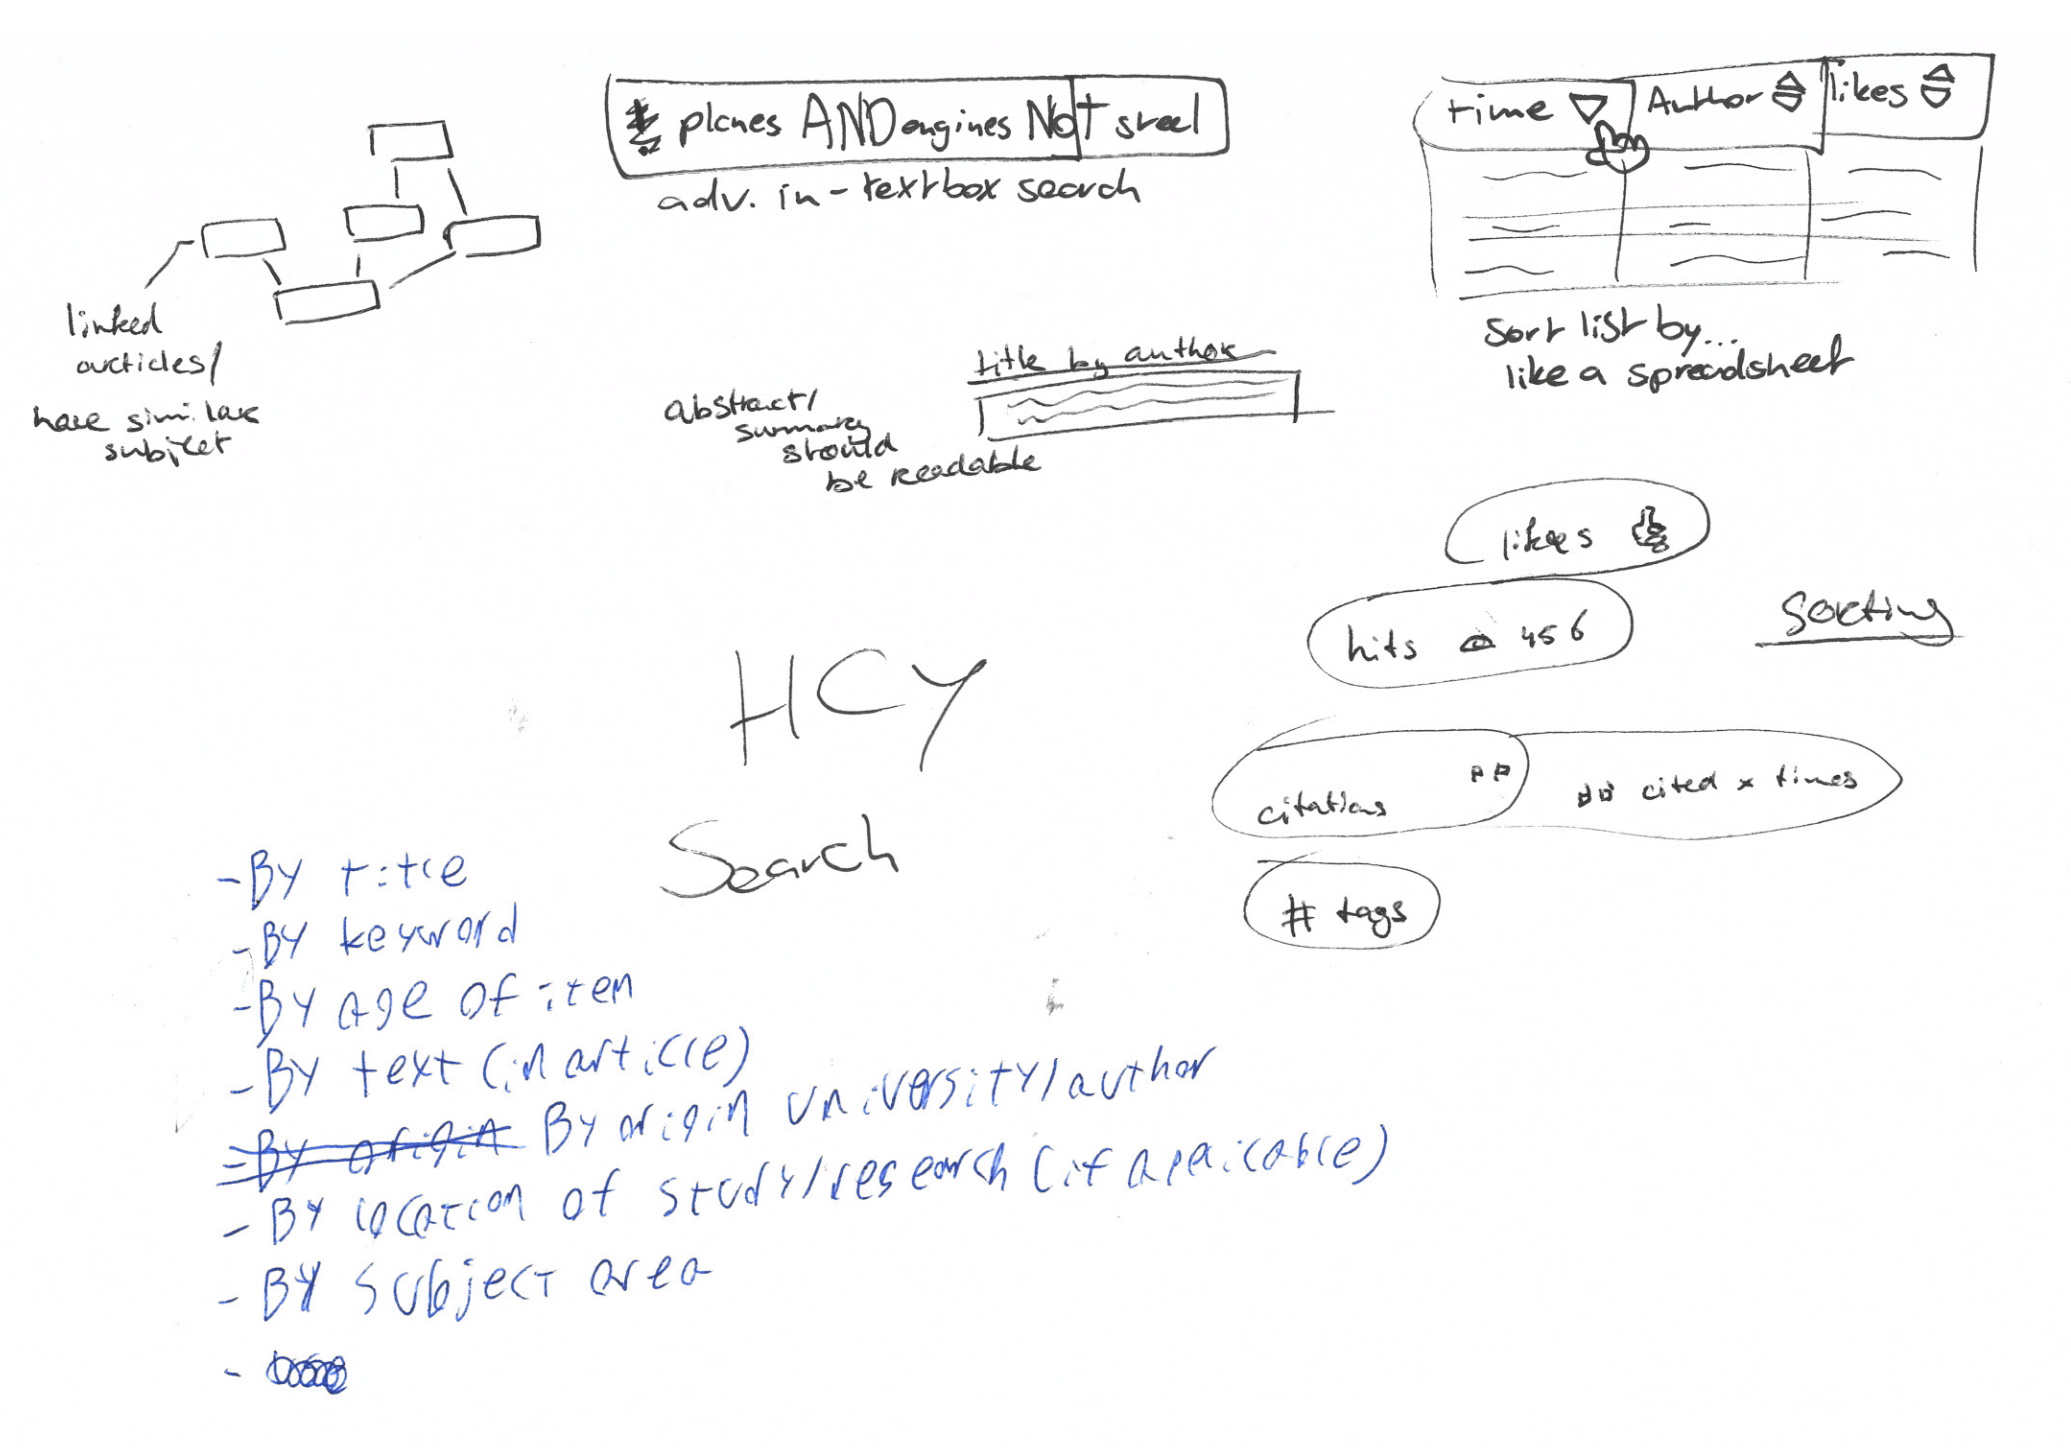 planes AND engines NOT steel
adv. in-textbox search
time Author likes
sort list by...
like a spreadsheet
linked
articles/
have similar
subject
title by author
abstract/
summary
should
be readable
likes
hits 456
sorting
HCY
Search
citations " cited x times
# tags
- By title
- By keyword
- By age of item
- By text (in article)
- By origin By origin university/author
- By location of study/research (if applicable)
- By subject area
-